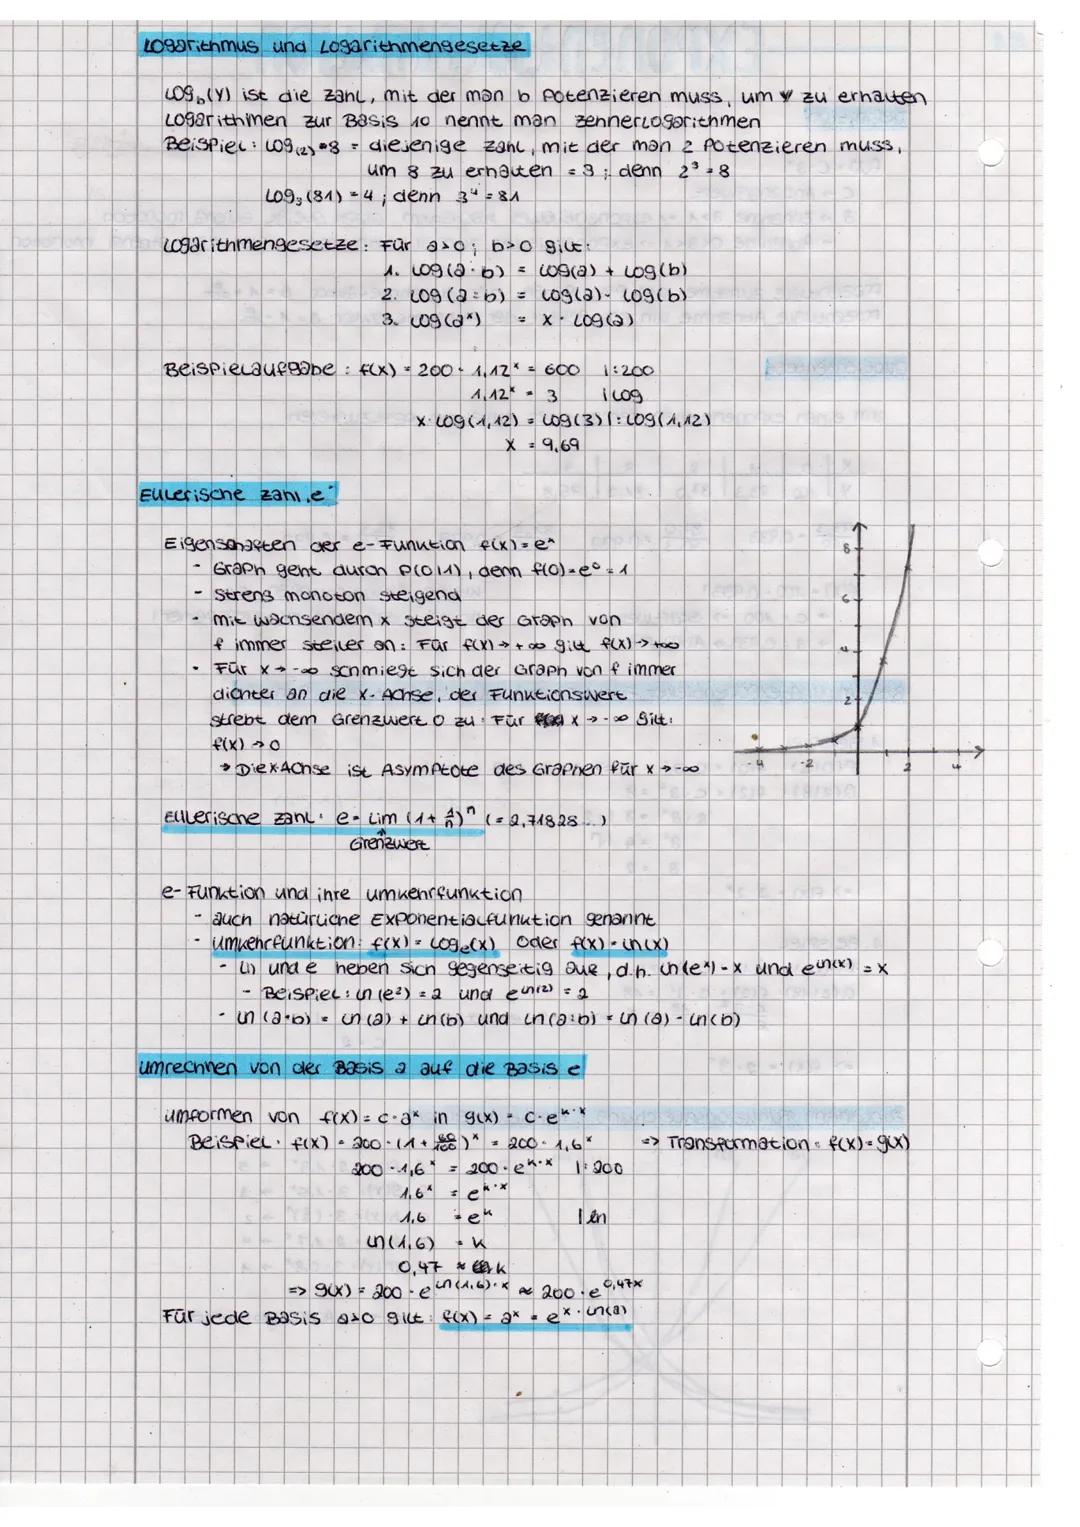 Logarithmus und Logarithmengesetze
Log_b(y) ist die Zahl, mit der man b potenzieren muss, um y zu erhalten
Logarithmen zur Basis 10 nennt man Zehnerlogarithmen
Beispiel: Log(2)=8 = diejenige Zahl, mit der man 2 potenzieren muss,
um 8 zu erhalten = 3; denn 2³=8
Log₃(81)=4; denn 3⁴=81
Logarithmengesetze: Für a>0; b>0 gilt:
1. Log(a·b) = Log(a) + Log(b)
2. Log(a:b) = Log(a) - Log(b)
3. Log(aˣ) = x · Log(a)
Beispielaufgabe: f(x) = 200 · 1,12ˣ = 600 |:200
1,12ˣ = 3 |Log
x·Log(1,12) = Log(3) |:Log(1,12)
x = 9,69
Eulerische Zahl „e"
Eigenschaften der e-Funktion f(x)=eˣ
- Graph geht durch P(0|1), denn f(0)=e⁰=1
- Streng monoton steigend
- mit wachsendem x steigt der Graph von
f immer steiler an: Für f(x)→+∞ gilt f(x)→+∞
- Für x→-∞ schmiegt sich der Graph von f immer
dichter an die x-Achse, der Funktionswert
strebt dem Grenzwert 0 zu: Für x→-∞ gilt:
f(x)→0
→ Die x Achse ist Asymptote des Graphen für x→-∞
8
6
4
2
-4 -2 2 4
Eulerische Zahl: e = Lim (1+1/n)ⁿ (=2,71828...)
Grenzwert
e-Funktion und ihre Umkehrfunktion
- auch natürliche Exponentialfunktion genannt
- Umkehrfunktion: f(x) = Logₑ(x) oder f(x)=Ln(x)
- Ln und e heben sich gegenseitig auf, d.h. Ln(eˣ)=x und e^Ln(x) = x
- Beispiel: Ln(e²)=2 und e^Ln(2) = 2
- Ln(a·b) = Ln(a) + Ln(b) und Ln(a:b) = Ln(a) - Ln(b)
Umrechnen von der Basis a auf die Basis e
Umformen von f(x)=c·aˣ in g(x) = c·e^k·x
Beispiel: f(x) = 200·(1+60/100)ˣ = 200·1,6ˣ => Transformation: f(x)=g(x)
200·1,6ˣ = 200·e^k·x |:200
1,6ˣ = e^k·x
1,6 = e^k |ln
Ln(1,6) = k
0,47 ≈ k
=> g(x) = 200·e^Ln(1,6)·x ≈ 200·e^0,47x
Für jede Basis a>0 gilt: f(x) = aˣ = e^x·Ln(a)